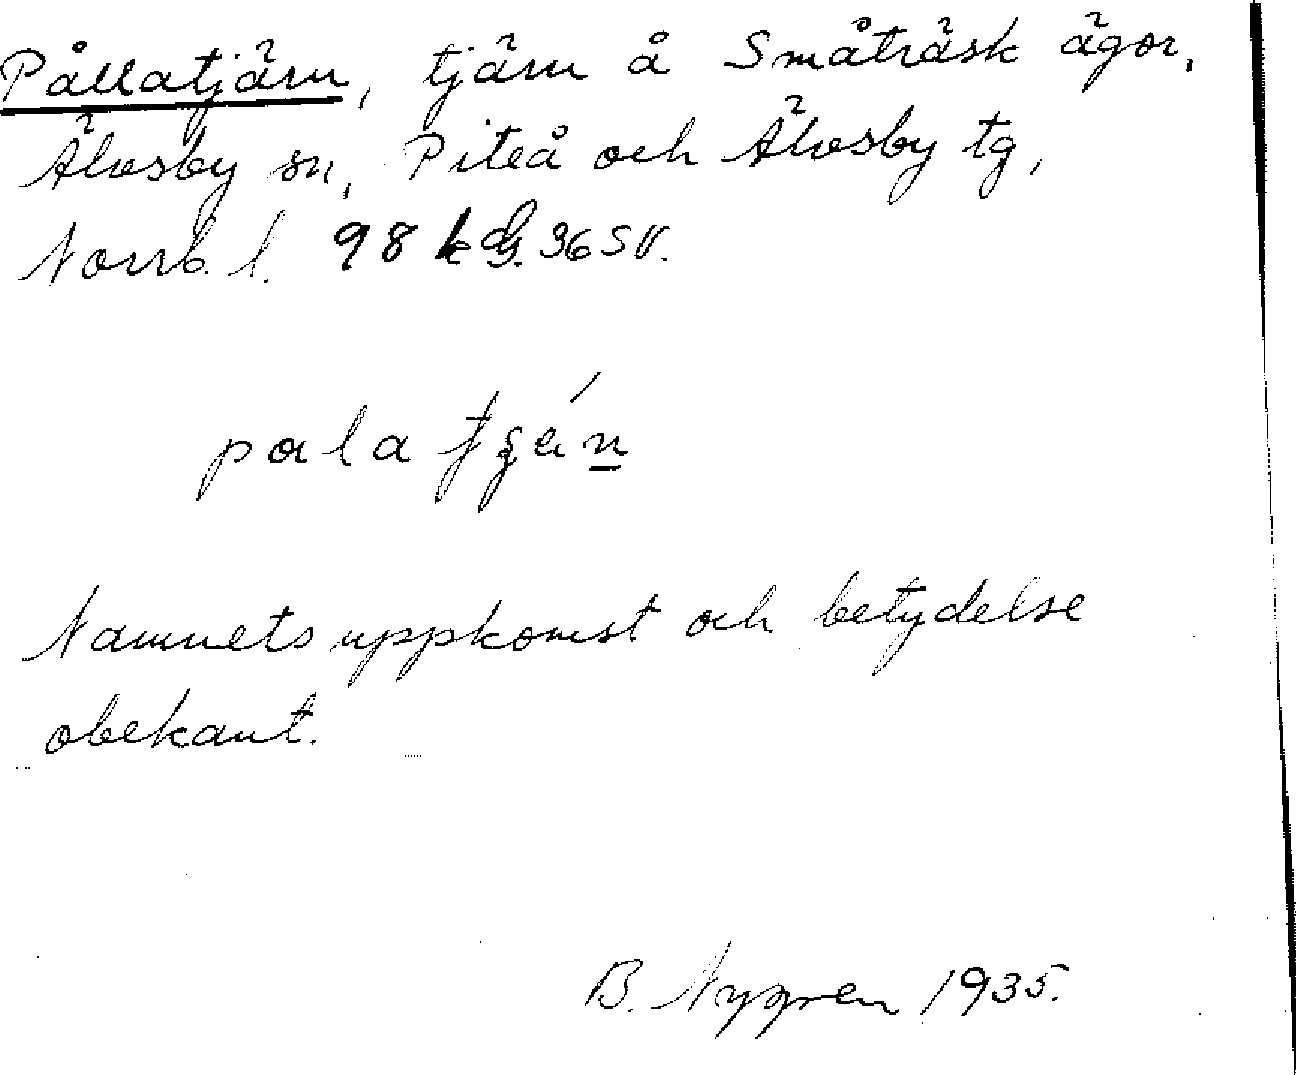 Pållatjärn, tjärn å Småträsk ägor,
Älvsby sn, Piteå och Älvsby tg,
Norrb. l. 98 36 SV.
Namnets uppkomst och betydelse
obekant.
B. Nygren 1935.